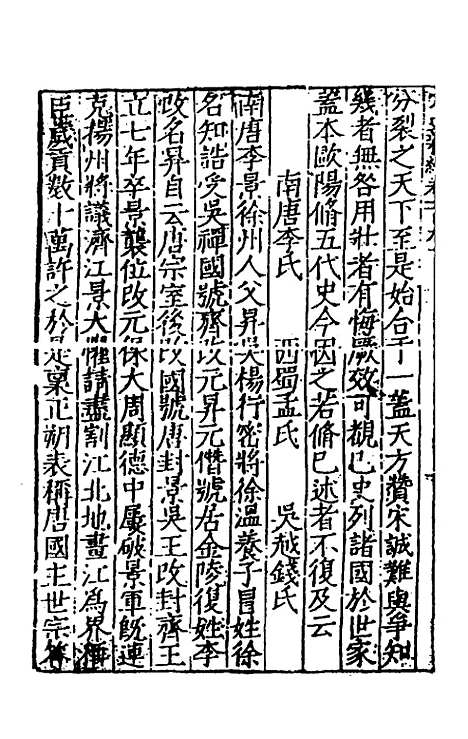 分裂之天下至是始合于一蓋天方贊宋誠難與爭知
幾者無咎用壯者有悔厥效可覩已史列諸國於世家
蓋本歐陽脩五代史今因之若脩已述者不復及云
南唐李氏 西蜀孟氏 吳越錢氏
南唐李景徐州人父昇吳楊行密將徐溫養子冒姓徐
名知誥受吳禪國號齊改元昇元僭號居金陵復姓李
改名昇自云唐宗室後改國號唐封景吳王改封齊王
立七年卒景襲位改元保大周顯德中屢破景軍旣連
克揚州將議濟江景大懼請盡割江北地畫江爲界稱
臣歲貢數十萬許之於是稟正朔表稱唐國主世宗答